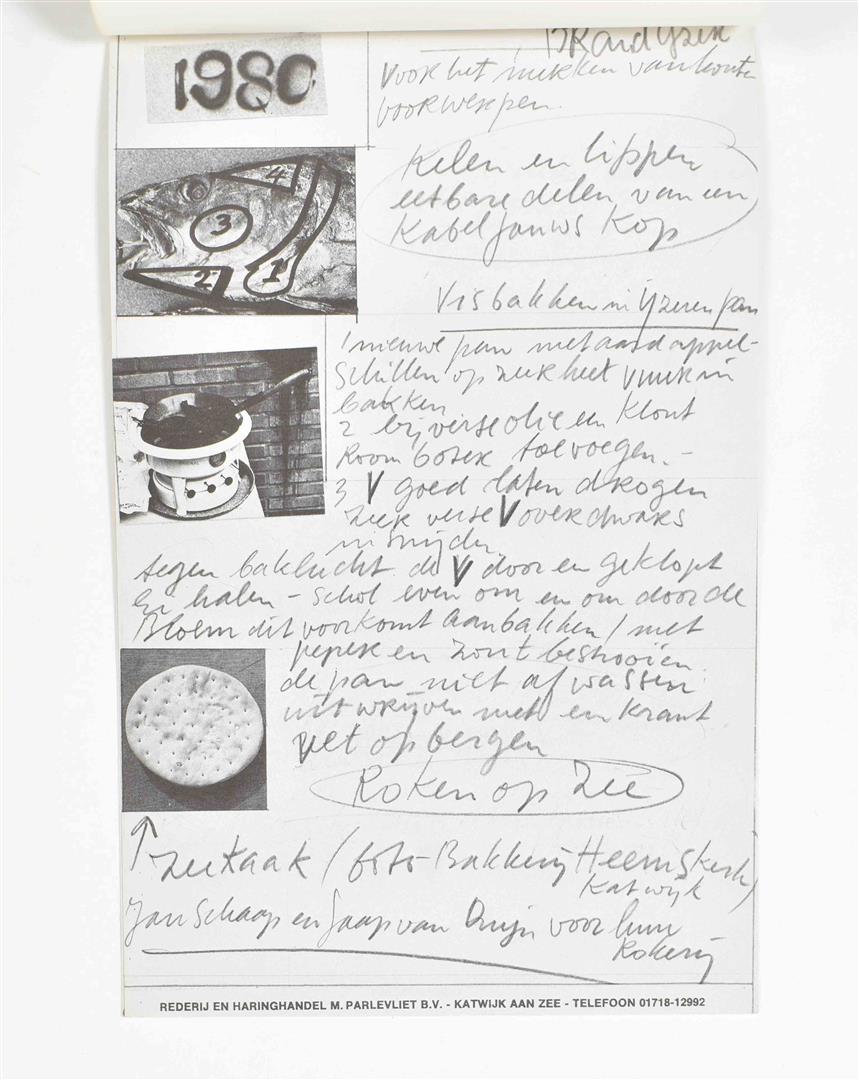 1980
Brandijzer
Voor het merken van houten
voorwerpen.
4
3
2
1
Kelen en lippen
eetbare delen van een
Kabeljauws Kop
Visbakken in Yzeren pan
1 nieuwe pan met aardappel-
schillen op zeer heet vuur in
bakken
2 bij verse olie een klont
Roomboter toevoegen. -
3 V goed laten drogen
zeer verse V overdwars
insnijden
tegen baklucht de V door en geklopt
Ei halen - schol even om en om door de
Bloem dit voorkomt aanbakken / met
peper en zout bestrooien.
de pan niet afwassen
uitwrijven met en krant
vet opbergen
Roken op Zee
Zeekaak / foto - Bakkerij Heemskerk)
Katwijk
Jan Schaap en Jaap van Duijn voor hun
Rokerij
REDERIJ EN HARINGHANDEL M. PARLEVLIET B.V. - KATWIJK AAN ZEE - TELEFOON 01718-12992